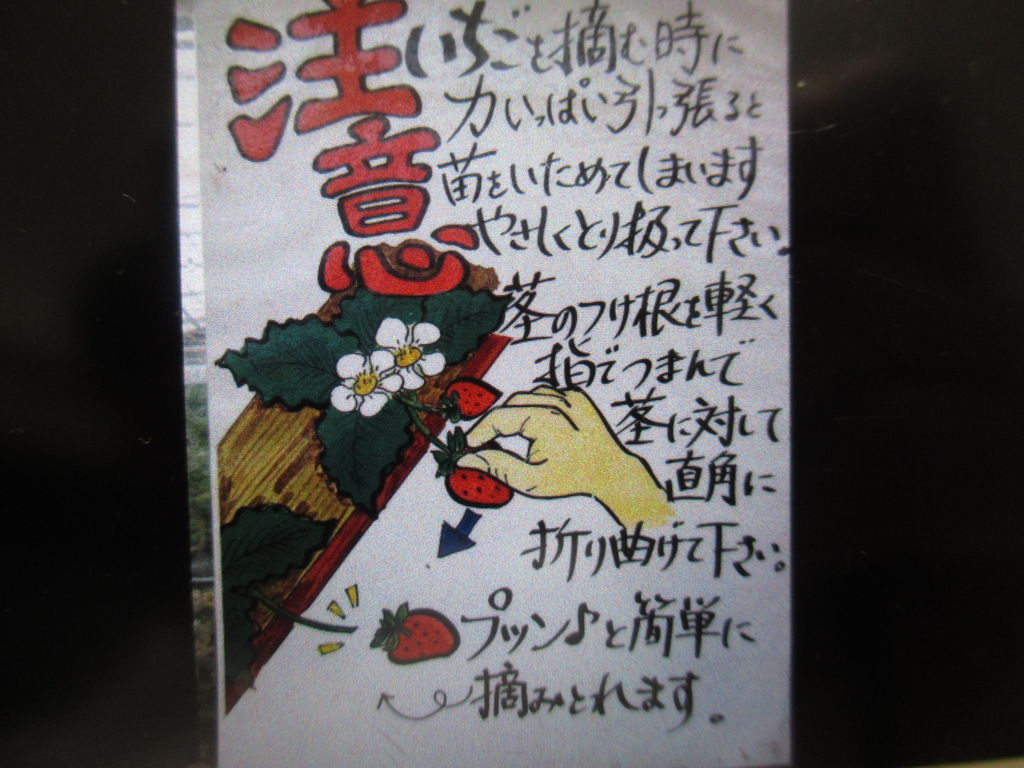 注意
いちごを摘む時に
力いっぱい引っ張ると
苗をいためてしまいます
やさしくとり扱って下さい。
茎のつけ根を軽く
指でつまんで
茎に対して
直角に
折り曲げて下さい。
プッン♪と簡単に
摘みとれます。